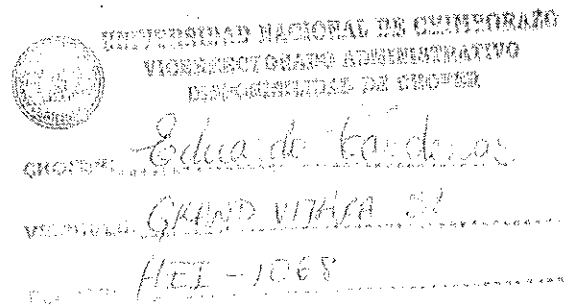 UNIVERSIDAD NACIONAL DE CHIMBORAZO
VICERRECTORADO ADMINISTRATIVO
DISPONIBILIDAD DE CHOFER
CHOFER: Eduardo Cárdenas
VEHICULO: GRAND VITARA SZ
HEI - 1068